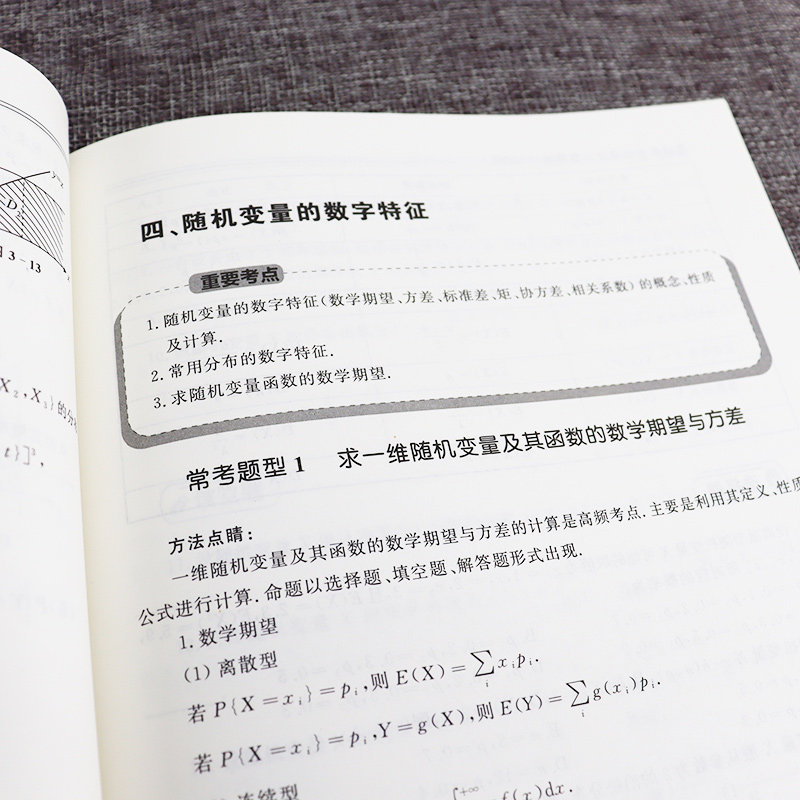 y=x
D₂
3-13
X₂,X₃}的分
t}]³,
四、随机变量的数字特征
重要考点
1.随机变量的数字特征(数学期望、方差、标准差、矩、协方差、相关系数)的概念、性质
及计算.
2.常用分布的数字特征.
3.求随机变量函数的数学期望.
常考题型1 求一维随机变量及其函数的数学期望与方差
方法点睛:
一维随机变量及其函数的数学期望与方差的计算是高频考点.主要是利用其定义、性质
公式进行计算.命题以选择题、填空题、解答题形式出现.
1.数学期望
(1)离散型
若P{X=xᵢ}=pᵢ,则E(X)=∑ᵢxᵢpᵢ.
若P{X=xᵢ}=pᵢ,Y=g(X),则E(Y)=∑ᵢg(xᵢ)pᵢ.
连续型
∫⁺∞ f(x)dx.